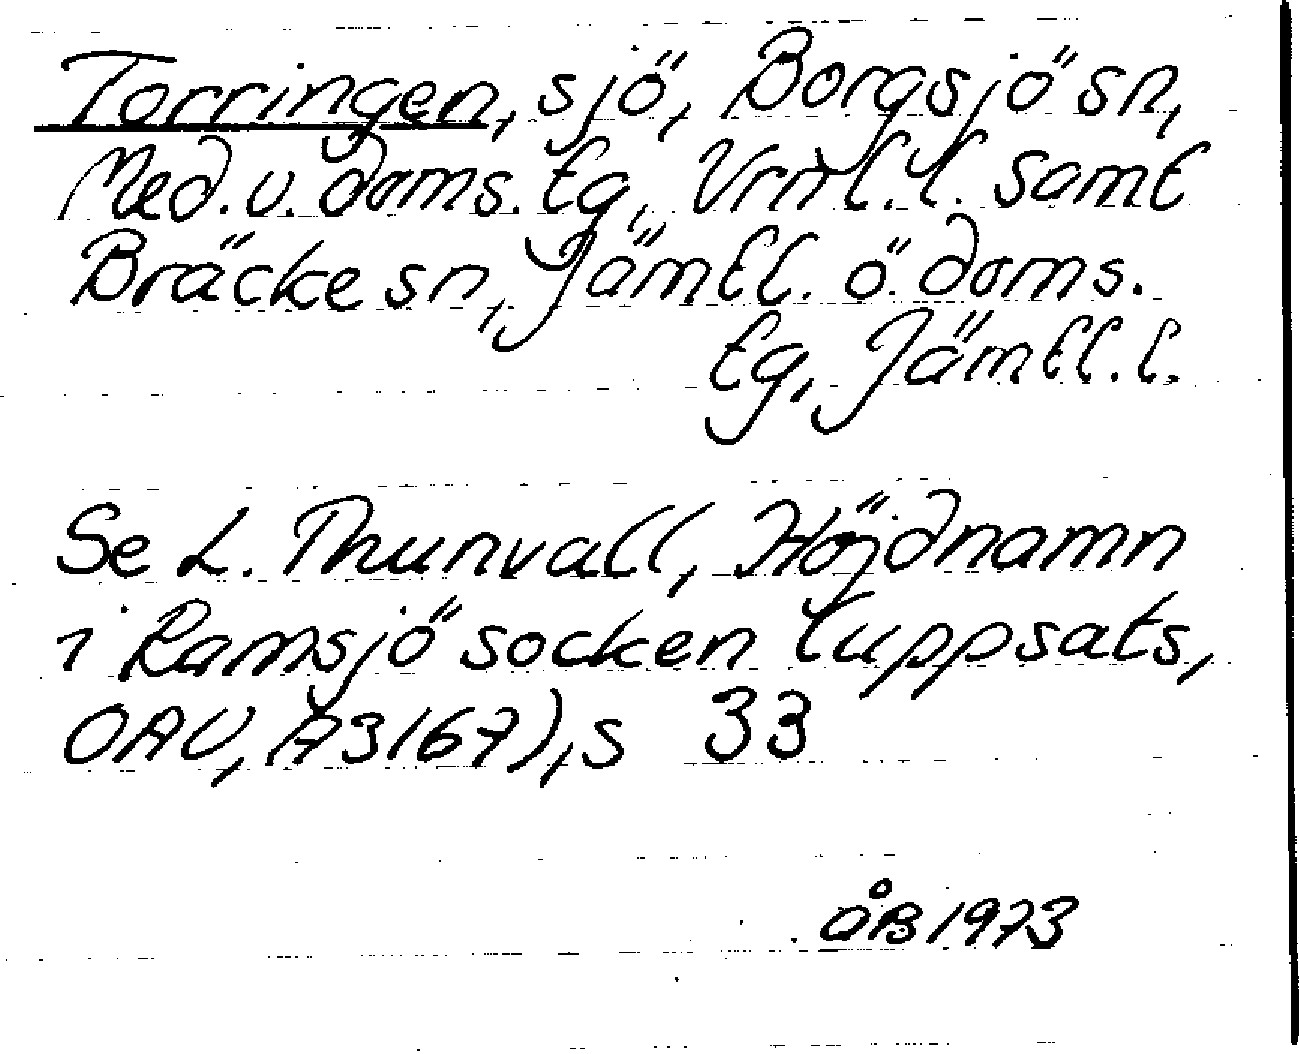 Torringen, sjö, Borgsjö sn,
Med. v. doms. tg, Vnl. l. samt
Bräcke sn, Jämtl. ö. doms.
tg, Jämtl. l.
Se L. Thunvall, Höjdnamn
i Ramsjö socken (uppsats,
OAU, A3167), s 33
ÖB 1973